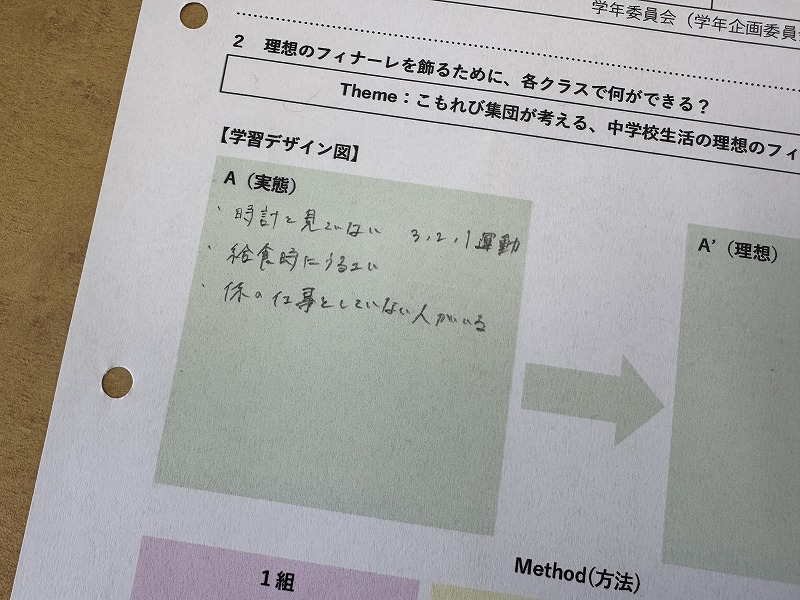 学年委員会（学年企画委員会
2 理想のフィナーレを飾るために、各クラスで何ができる？
Theme：こもれび集団が考える、中学校生活の理想のフィ
【学習デザイン図】
A（実態）
・時計を見ていない 3,2,1運動
・給食時にうるさい
・係の仕事をしていない人がいる
A’（理想）
Method(方法)
1組